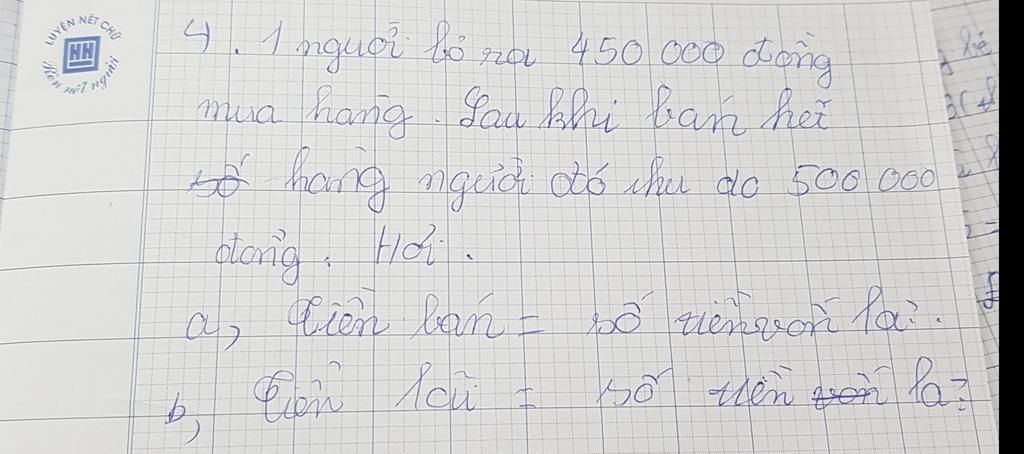 LUYỆN NÉT CHỮ
HH
Rèn nết người
4. 1 người bỏ ra 450 000 đồng
mua hàng. Sau khi bán hết
số hàng người đó thu dc 500 000
đồng. Hỏi.
a, Tiền bán = số tiền vốn là:
b, Tiền lãi = số tiền vốn là?